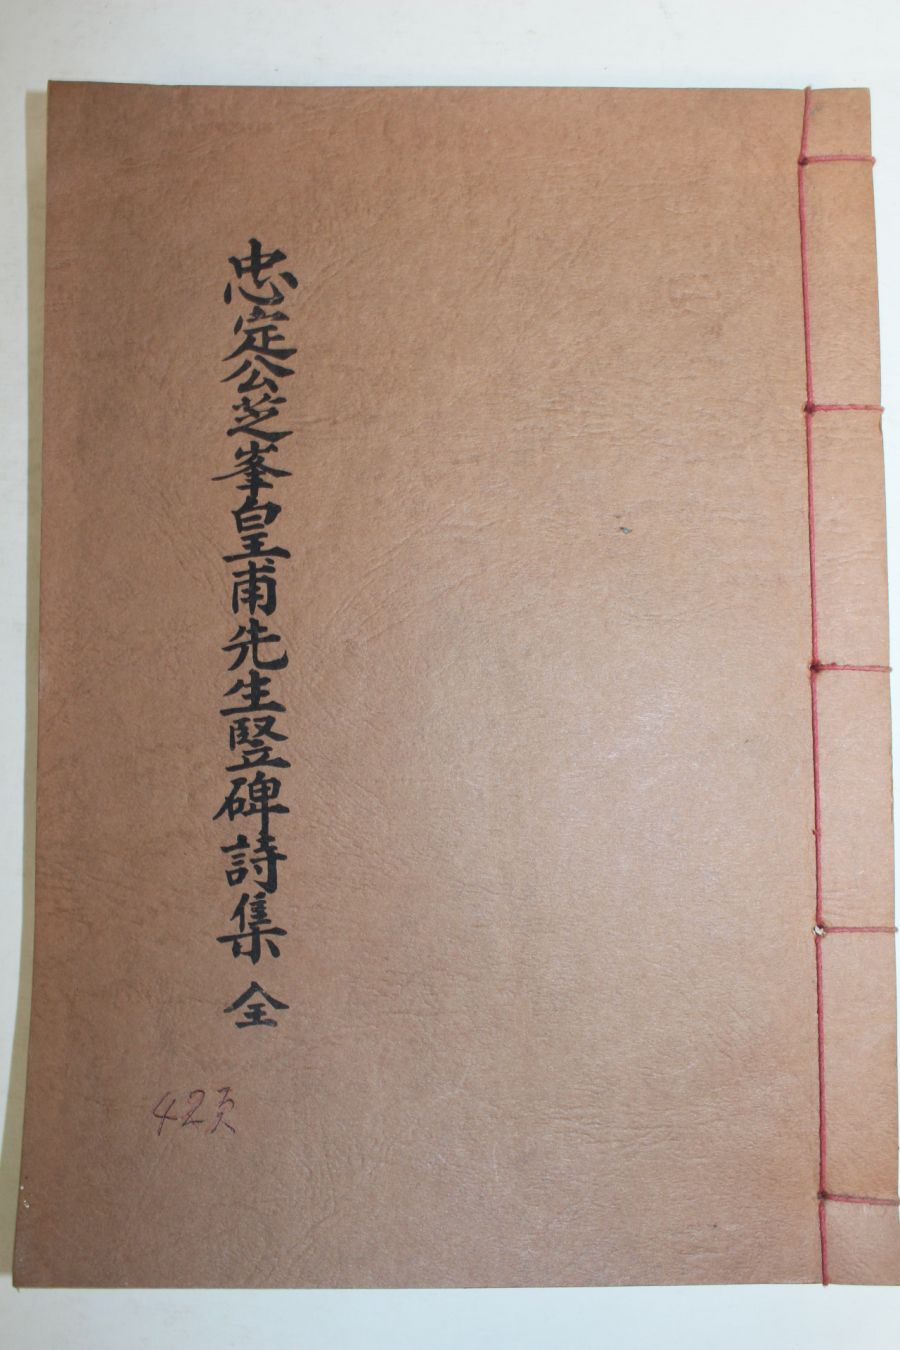 忠定公芝峯皇甫先生豎碑詩集 全
42页